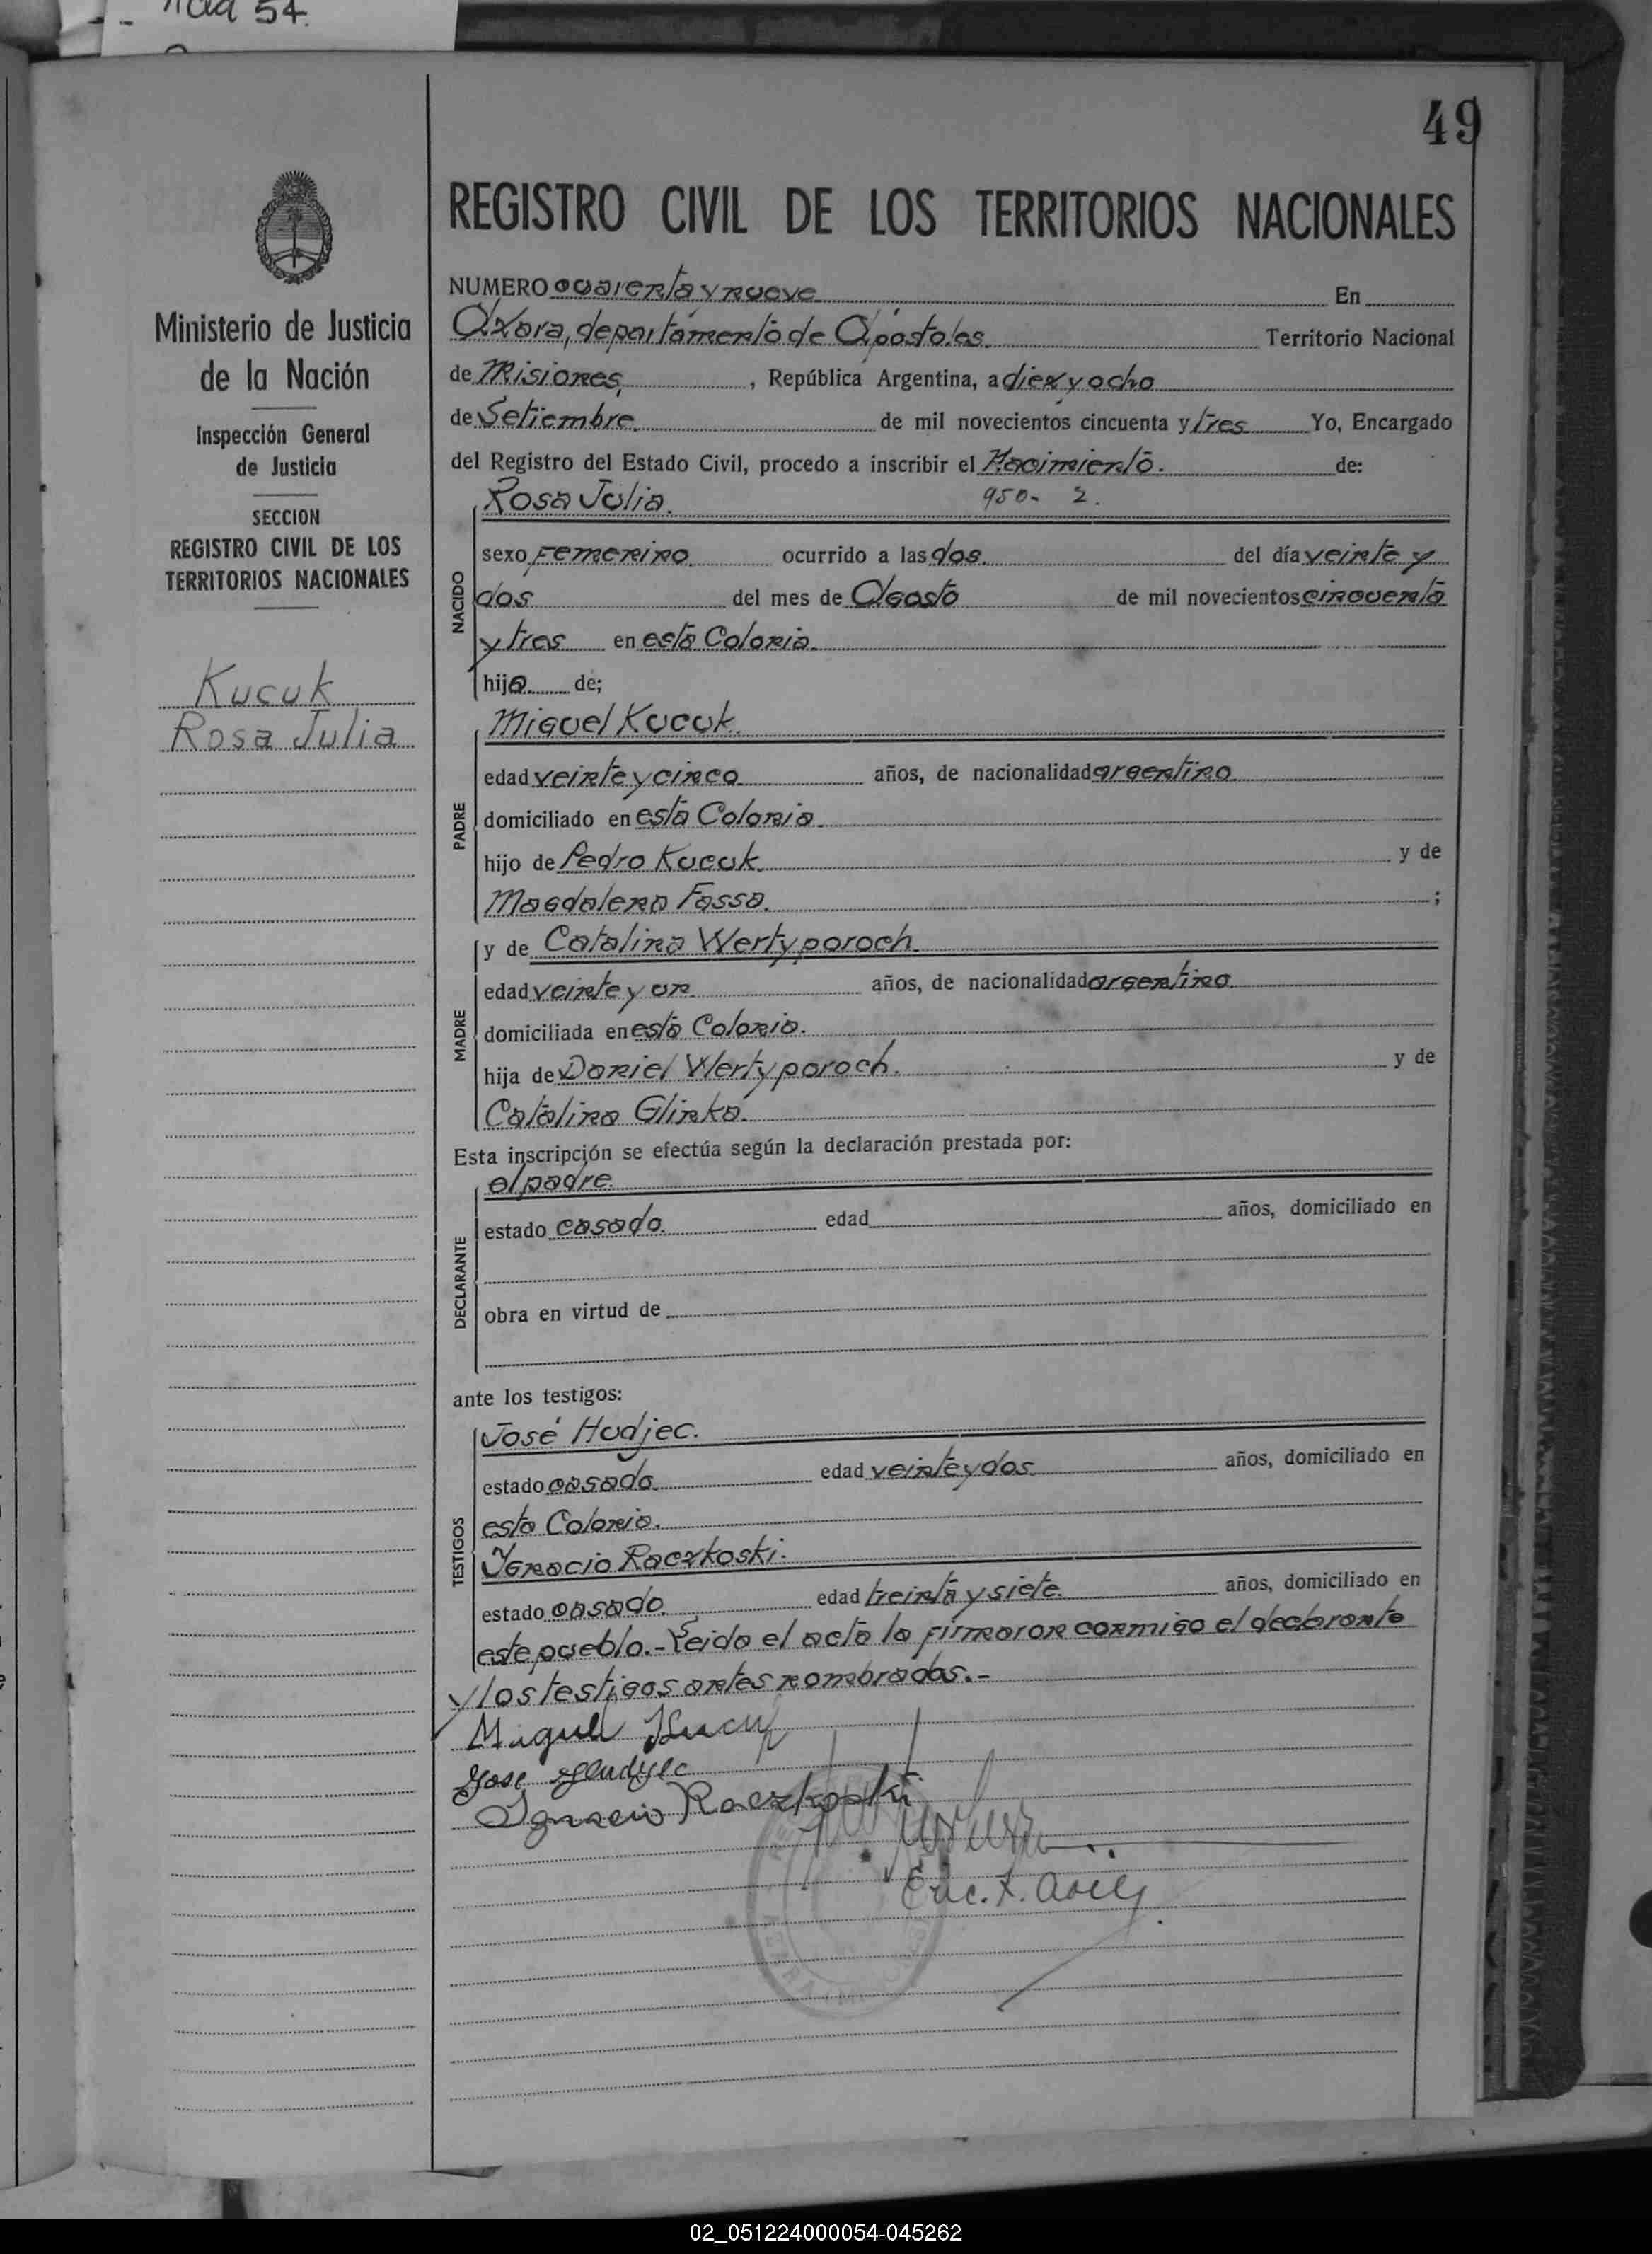 54.
49
REGISTRO CIVIL DE LOS TERRITORIOS NACIONALES
Ministerio de Justicia
de la Nación
Inspección General
de Justicia
SECCION
REGISTRO CIVIL DE LOS
TERRITORIOS NACIONALES
Kucuk
Rosa Julia
NUMERO cuarenta y nueve En
Azara, departamento de Apóstoles. Territorio Nacional
de Misiones, República Argentina, a diez y ocho
de Setiembre. de mil novecientos cincuenta y tres Yo, Encargado
del Registro del Estado Civil, procedo a inscribir el Nacimiento. de:
Rosa Julia. 950- 2.
NACIDO
sexo Femenino. ocurrido a las dos. del día veinte y
dos del mes de Agosto de mil novecientos cincuenta
y tres en esta Colonia.
hija de;
PADRE
Miguel Kucuk.
edad veinte y cinco años, de nacionalidad argentina
domiciliado en esta Colonia.
hijo de Pedro Kucuk. y de
Magdalena Fassa. ;
MADRE
y de Catalina Wertyporoch.
edad veinte y un años, de nacionalidad argentina.
domiciliada en esta Colonia.
hija de Daniel Wertyporoch. y de
Catalina Glinka.
Esta inscripción se efectúa según la declaración prestada por:
DECLARANTE
el padre.
estado casado. edad años, domiciliado en
obra en virtud de
ante los testigos:
TESTIGOS
José Hudjec.
estado casado. edad veinte y dos años, domiciliado en
esta Colonia.
Ygnacio Raczkoski.
estado casado. edad treinta y siete. años, domiciliado en
este pueblo.- Leida el acta la firmaron conmigo el declarante
y los testigos antes nombrados.-
Miguel Kucuk
José Hudyec
Ignacio Raczkoski
Enc. R. Civil
AZARA
02_051224000054-045262